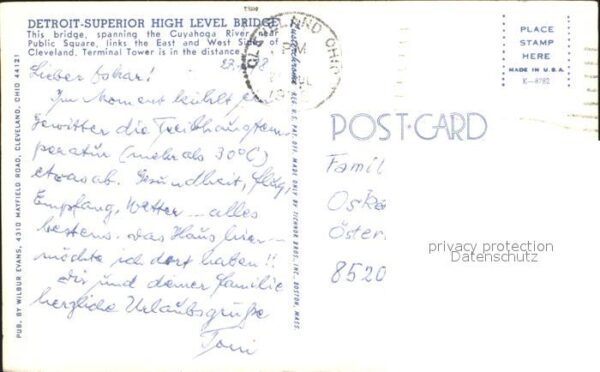 DETROIT-SUPERIOR HIGH LEVEL BRIDGE
This bridge, spanning the Cuyahoga River near
Public Square, links the East and West Side of
Cleveland. Terminal Tower is in the distance.
Lieber Oskar!
Im Moment kühlt ein
Gewitter die Treibhaustem-
peratur (mehr als 30°C)
etwas ab. Gesundheit, Flug,
Empfang, Wetter ... alles
bestens. Das Haus hier -
möchte ich dort haben!!
Dir und deiner Familie
herzliche Urlaubsgrüße
Toni
PUB. BY WILBUR EVANS, 4310 MAYFIELD ROAD, CLEVELAND, OHIO 44121
REG. U.S. PAT. OFF. MADE ONLY BY TICHNOR BROS., INC., BOSTON, MASS.
CLEVELAND OHIO
PM
PLACE
STAMP
HERE
MADE IN U.S.A.
K-8782
POST CARD
Famil
Oska
Öster
8520
privacy protection
Datenschutz